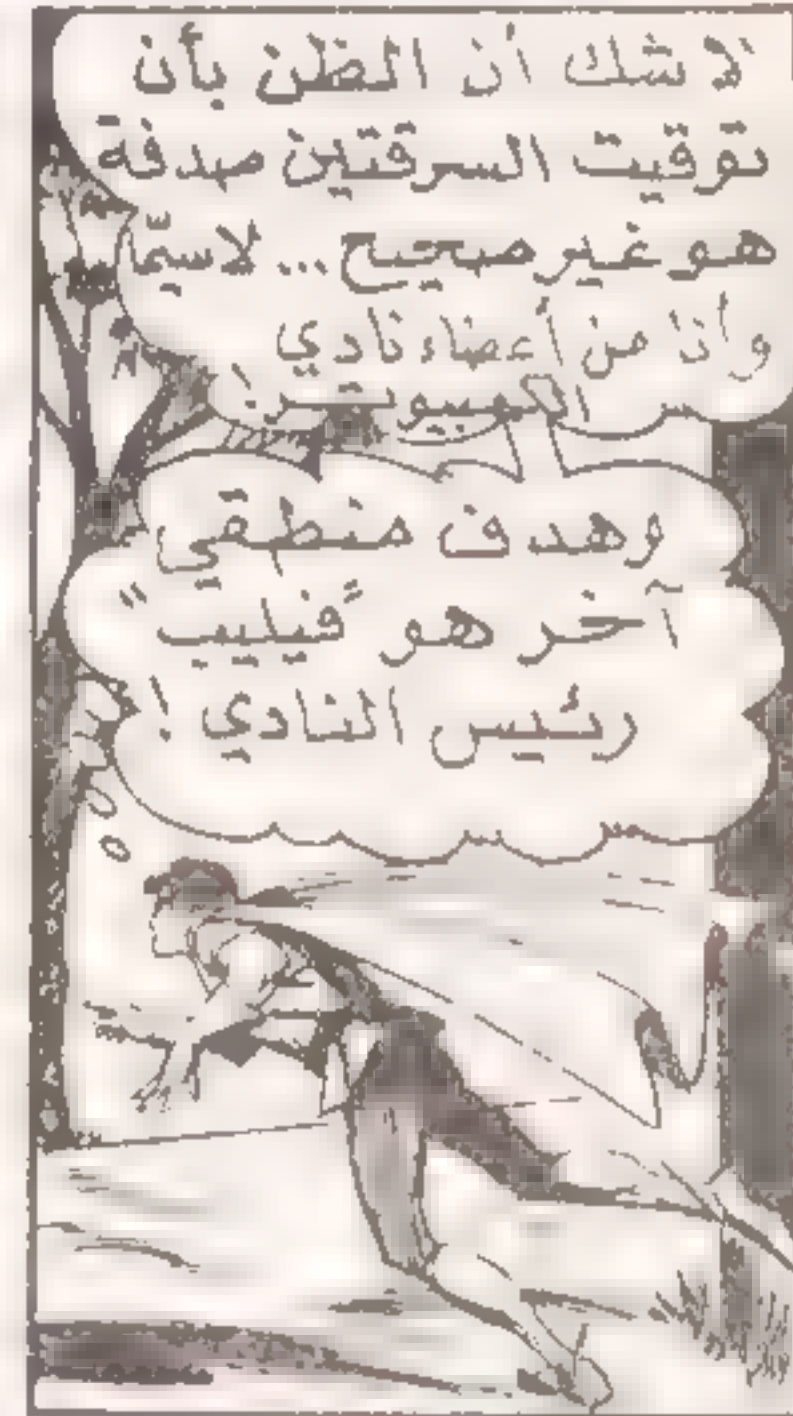 لا شك أن الظن بأن
توقيت السرقتين صدفة
هو غير صحيح... لاسيّما
وأنا من أعضاء نادي
الكمبيوتر!
وهدف منطقي
آخر هو "فيليب"
رئيس النادي!